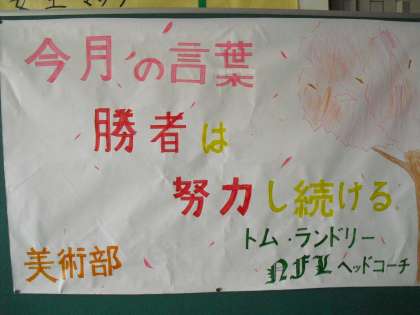 今月の言葉
勝者は
努力し続ける
トム・ランドリー
NFLヘッドコーチ
美術部